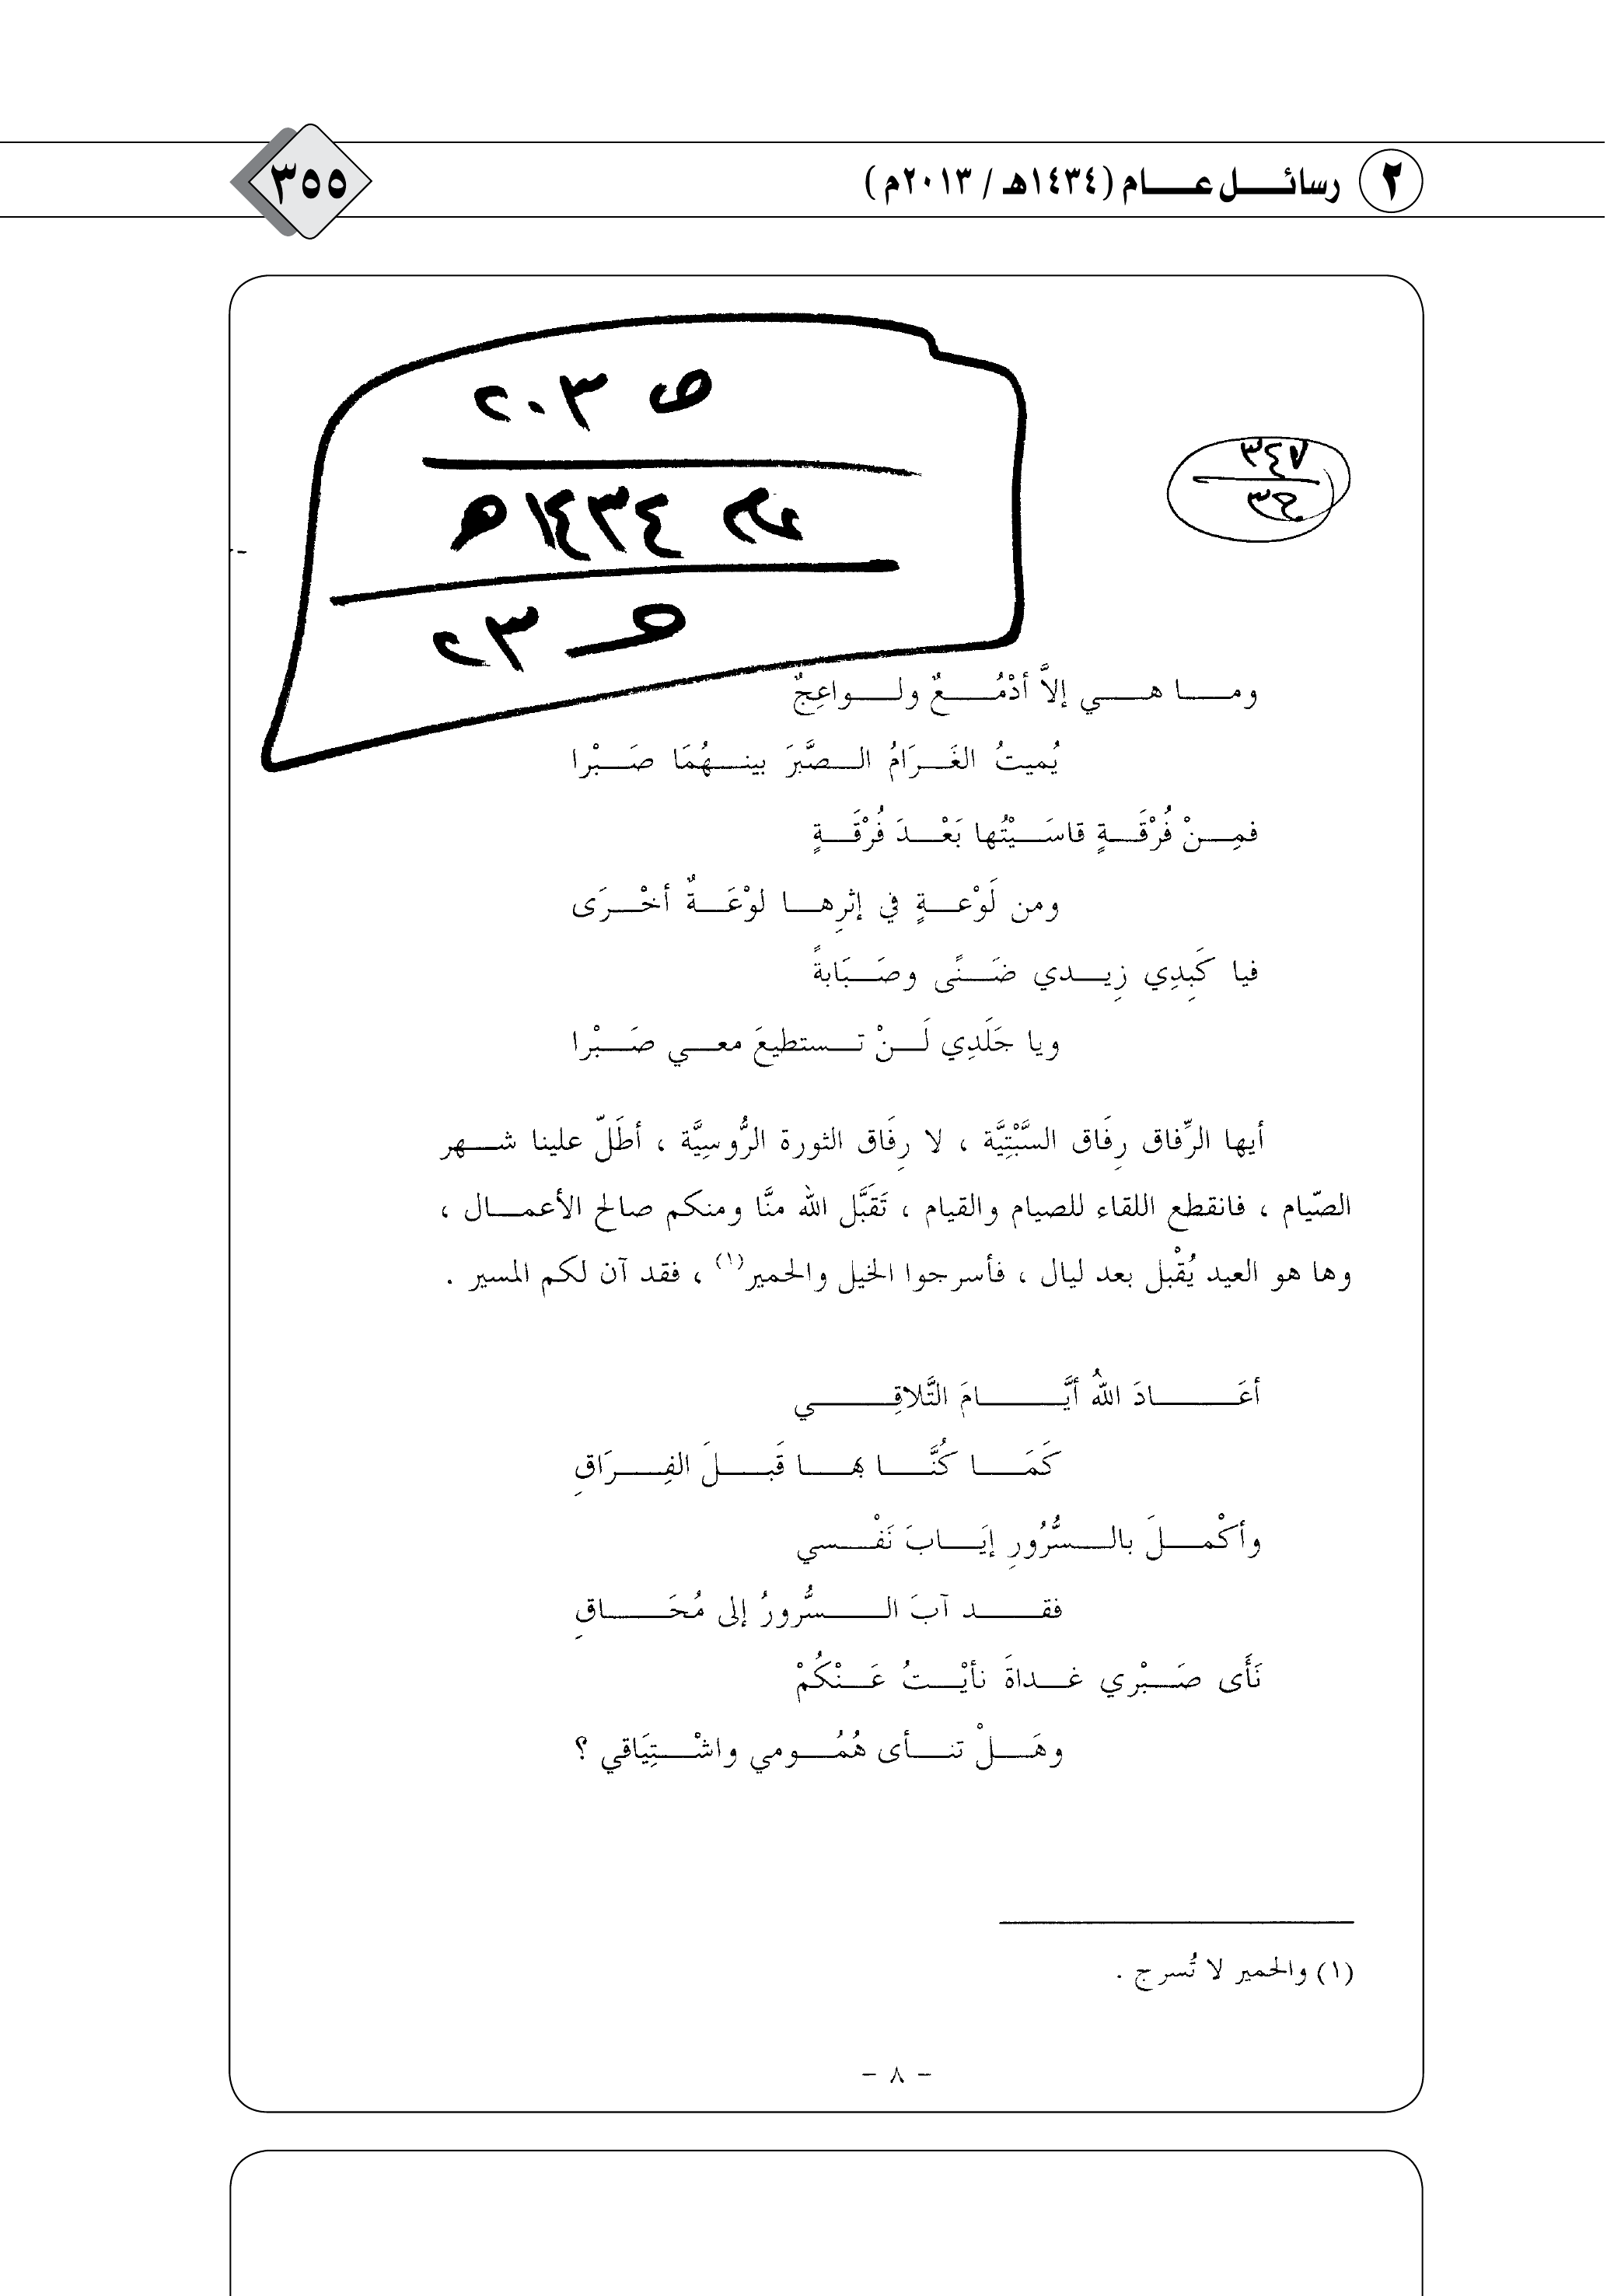 ٢ رسائل عام (١٤٣٤هـ / ٢٠١٣م) ٣٥٥
ص ٢٠٣
عام ١٤٣٤هـ
٣٤٧
وما هي إلاَّ أدْمُعٌ ولواعِجٌ
يُميتُ الغَرَامُ الصَّبَرَ بينهُمَا صَبْرا
فمِنْ فُرْقَةٍ قاسَيْتُها بَعْدَ فُرْقَةٍ
ومن لَوْعةٍ في إثرِها لوْعَةٌ أخْرَى
فيا كَبِدِي زِيدي ضَنًى وصَبَابةً
ويا جَلَدِي لَنْ تستطيعَ معي صَبْرا
أيها الرِّفاق رِفَاق السَّبْتِيَّة ، لا رِفَاق الثورة الرُّوسِيَّة ، أطَلّ علينا شهر
الصّيام ، فانقطع اللقاء للصيام والقيام ، تَقَبَّل الله منَّا ومنكم صالح الأعمال ،
وها هو العيد يُقْبل بعد ليال ، فأسرجوا الخيل والحمير(١) ، فقد آن لكم المسير .
أعَادَ اللهُ أيَّامَ التَّلاقِي
كَمَا كُنَّا بها قَبلَ الفِرَاقِ
وأكْملَ بالسُّرُورِ إيَابَ نَفْسي
فقد آبَ السُّرورُ إلى مُحَاقِ
نَأَى صَبْري غداةَ نأيْتُ عَنْكُمْ
وهَلْ تنأى هُمُومي واشْتِيَاقي ؟
(١) والحمير لا تُسرج .
- ٨ -